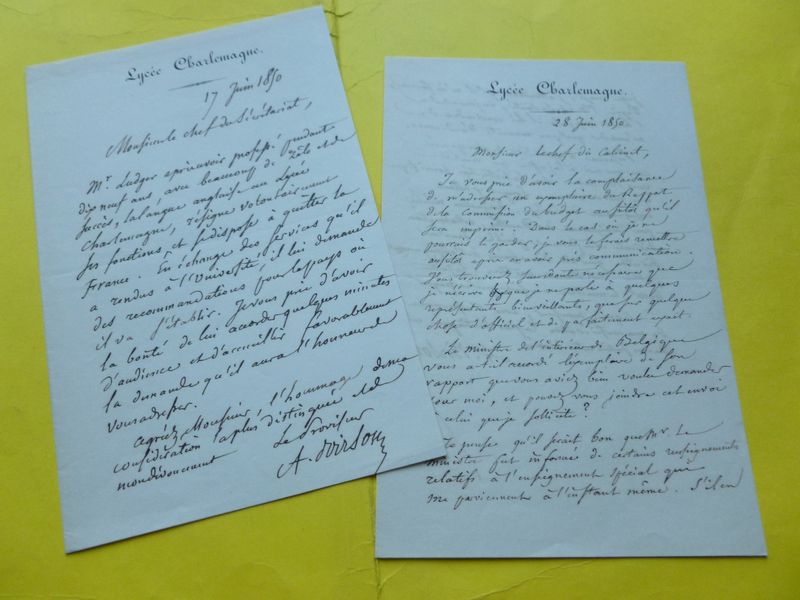 Lycée Charlemagne.
17 Juin 1850
Monsieur le chef du Sécrétariat,
Mr. Ludger après avoir professé pendant
dix neuf ans, avec beaucoup de zèle et de
succès, la langue anglaise au Lycée
Charlemagne, résigne volontairement
ses fonctions, et se dispose à quitter la
France. En échange des services qu'il
a rendus à l'Université, il lui demande
des recommandations pour le pays où
il va s'établir. Je vous prie d'avoir
la bonté de lui accorder quelques minutes
d'audience et d'accueillir favorablement
la demande qu'il aura l'honneur de
vous adresser.
Agréez, Monsieur, l'hommage de ma
considération la plus distinguée et de
mon dévouement
Le Proviseur
A. Poirson
Lycée Charlemagne.
28 Juin 1850.
Monsieur le chef du Cabinet,
Je vous prie d'avoir la complaisance
de m'adresser un exemplaire du Rapport
de la Commission du budget aussitôt qu'il
sera imprimé. Dans le cas où je ne
pourrais le garder, je vous le ferais remettre
aussitôt après en avoir pris communication.
Vous trouverez sans doute nécessaire que
je n'écrive et que je ne parle à quelques
représentants bienveillants, que sur quelque
chose d'officiel et de parfaitement exact.
Le ministre de l'intérieur de Belgique
vous a-t-il accordé l'exemplaire de son
rapport que vous aviez bien voulu demander
pour moi, et pouvez vous joindre cet envoi
à celui que je sollicite?
Je pense qu'il serait bon que Mr. Le
Ministre fut informé de certains renseignements
relatifs à l'enseignement spécial qui
me parviennent à l'instant même. S'il en